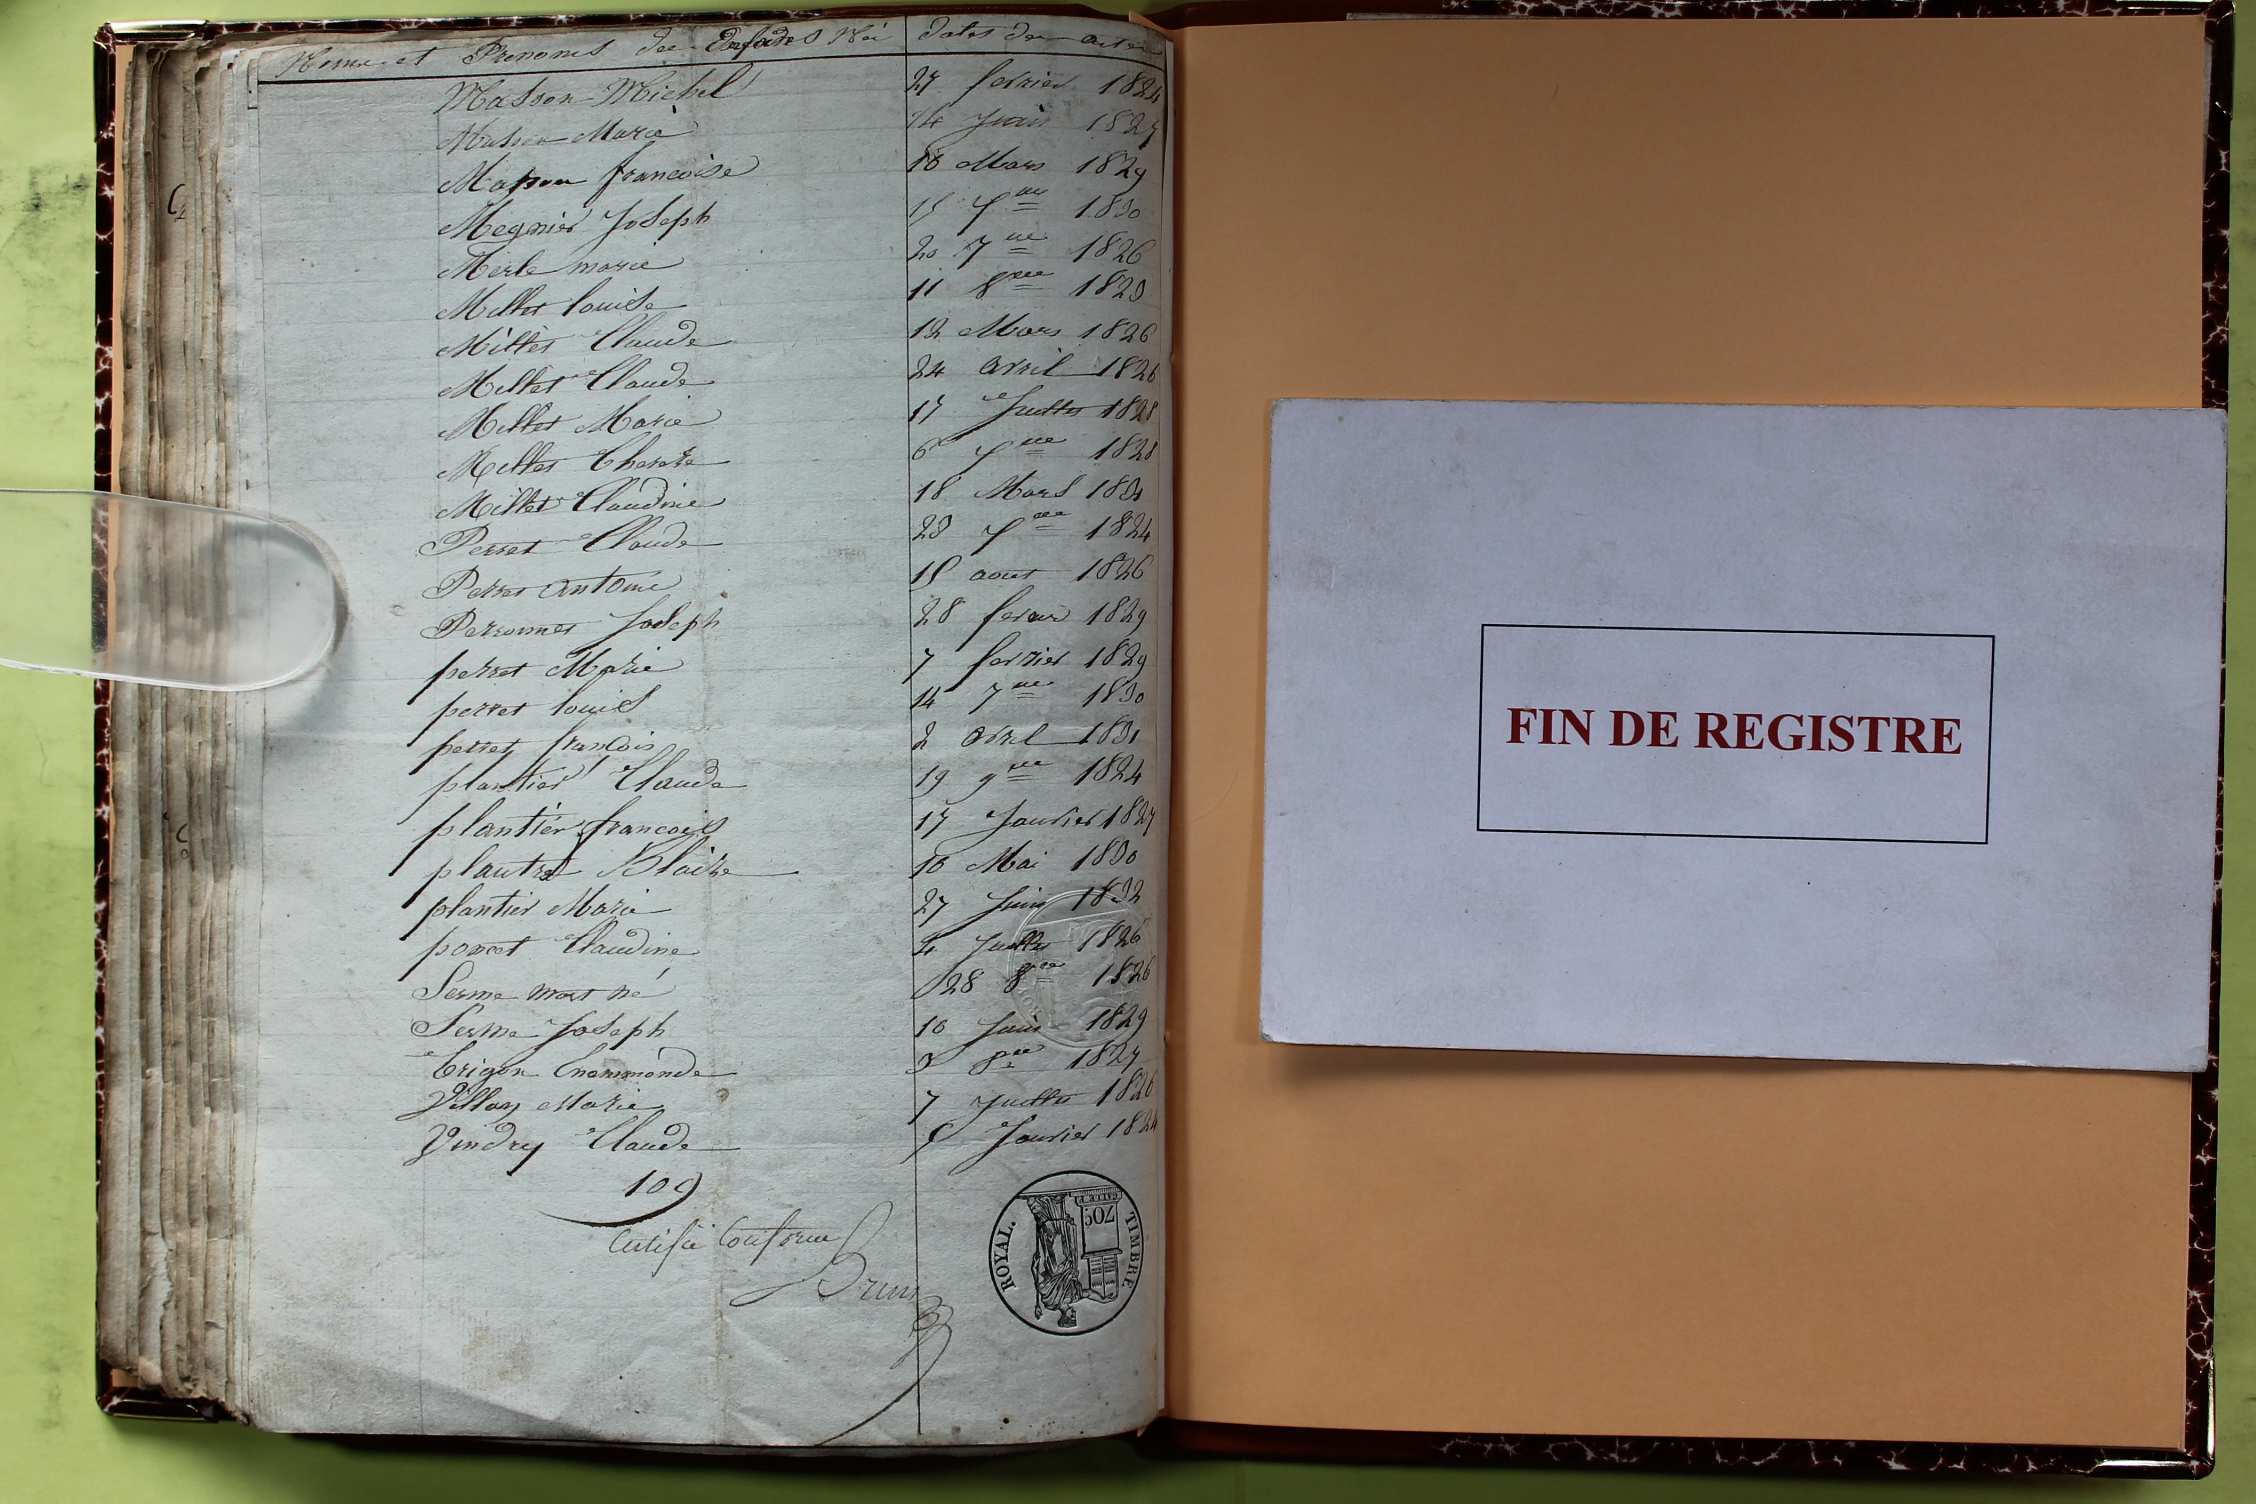 Noms et Prenoms des Enfants Nés Dates des actes
Masson Michel 27 fevrier 1824
Masson Marie 14 Juin 1827
Masson francoise 10 Mars 1829
Megnier Joseph 15 1830
Merle marie 20 7bre 1826
Millet louise 11 8bre 1829
Millet Claude 12 Mars 1826
Millet Claude 24 avril 1826
Millet Marie 17 Juillet 1828
Millet Therese 6 1828
Millet Claudine 18 Mars 1831
Perret Claude 23 1824
Perret antoine 15 aout 1826
Perronnet Joseph 28 fevrier 1829
perret Marie 7 fevrier 1829
perret louis 14 7bre 1830
perret francois 2 avril 1831
plantier Claude 19 9bre 1824
plantier francois 17 Janvier 1827
Blaise 10 Mai 1830
plantier Marie 27 Juin 1832
poncet Claudine 4 Juillet 1826
Serme mort né 28 8bre 1826
Serme Joseph 10 Juin 1829
Trigon 3 8bre 1827
Marie 7 Juillet 1826
Vindry Claude Janvier 1824
109
Certifié Conforme
Brun
TIMBRE ROYAL.
70c
FIN DE REGISTRE